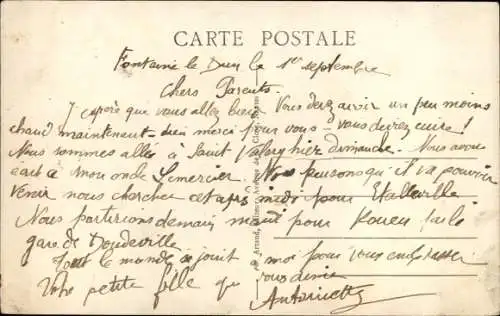 CARTE POSTALE
Fontaine le Dun le 1er septembre
Chers Parents
J'espère que vous allez bien. Vous devez avoir un peu moins
chaud maintenant - dieu merci pour vous - vous deviez cuire!
Nous sommes allés à Saint Valery hier dimanche. Nous avons
écrit à mon oncle Lemercier. Nous pensons qu'il va pouvoir
venir nous chercher cet après midi pour
Nous partirons demain matin pour Rouen par la
gare de Doudeville
Tout le monde se joint moi pour vous embrasser
Votre petite fille qui vous aime
Antoinette